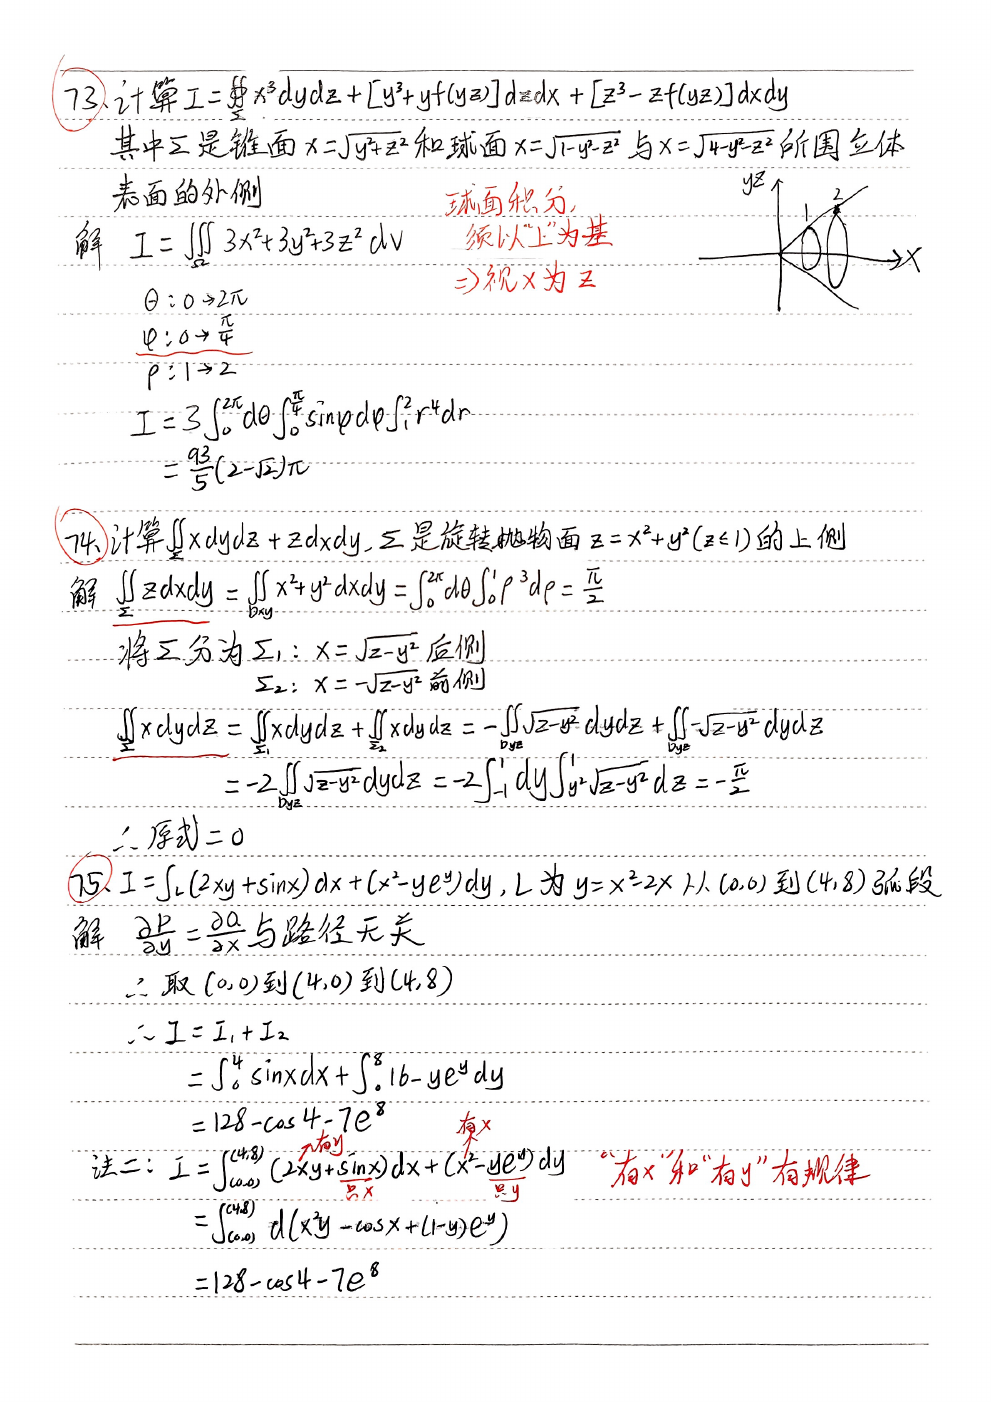 73、计算 I=∯_Σ x³dydz+[y³+yf(yz)]dzdx+[z³-zf(yz)]dxdy
其中Σ是锥面 x=√(y²+z²) 和球面 x=√(1-y²-z²) 与 x=√(4-y²-z²) 所围立体
表面的外侧
球面积分,
须以“上”为基
⇒视x为z
yz
1
2
x
解 I=∭_Ω 3x²+3y²+3z² dV
θ:0→2π
φ:0→π/4
ρ:1→2
I=3∫₀^{2π}dθ∫₀^{π/4}sinφdφ∫₁²r⁴dr
=93/5(2-√2)π
74、计算∬_Σ xdydz+zdxdy,Σ是旋转抛物面 z=x²+y²(z≤1)的上侧
解 ∬_Σ zdxdy=∬_{Dxy} x²+y²dxdy=∫₀^{2π}dθ∫₀¹ρ³dρ=π/2
将Σ分为Σ₁:x=√(z-y²) 后侧
Σ₂:x=-√(z-y²) 前侧
∬_Σ xdydz=∬_{Σ₁}xdydz+∬_{Σ₂}xdydz=-∬_{Dyz}√(z-y²)dydz+∬_{Dyz}-√(z-y²)dydz
=-2∬_{Dyz}√(z-y²)dydz=-2∫₋₁¹dy∫_{y²}¹√(z-y²)dz=-π/2
∴原式=0
75、I=∫_L(2xy+sinx)dx+(x²-ye^y)dy,L为y=x²-2x从(0,0)到(4,8)弧段
解 ∂P/∂y=∂Q/∂x 与路径无关
∴取(0,0)到(4,0)到(4,8)
∴I=I₁+I₂
=∫₀⁴sinxdx+∫₀⁸16-ye^ydy
=128-cos4-7e⁸
有y
有x
法二:I=∫_{(0,0)}^{(4,8)}(2xy+sinx)dx+(x²-ye^y)dy “有x”和“有y”有规律
只x
只y
=∫_{(0,0)}^{(4,8)}d(x²y-cosx+(1-y)e^y)
=128-cos4-7e⁸